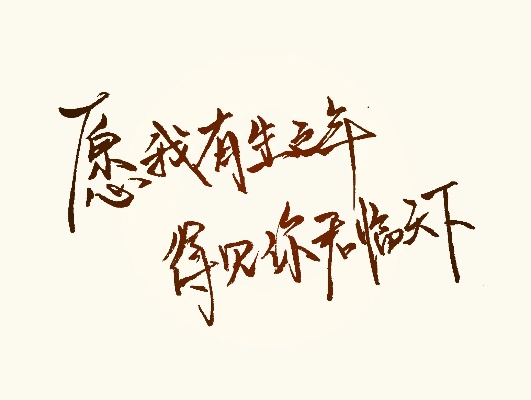 愿我有生之年
得见你君临天下